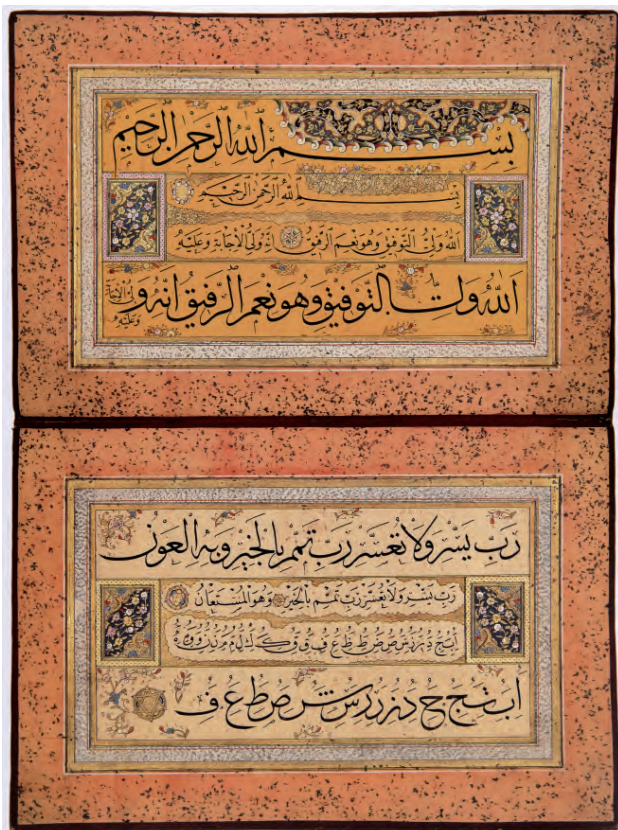 بسم الله الرحمن الرحيم
بسم الله الرحمن الرحيم
الله ولي التوفيق وهو نعم الرفيق انه ولي الاجابة وعليه
الله ولي التوفيق وهو نعم الرفيق انه ولي الاجابة وعليه
رب يسر ولا تعسر رب تمم بالخير وبه العون
رب يسر ولا تعسر رب تمم بالخير وهو المستعان
ا ب ت ج
ا ب ت ج ح د ز ر ر س ش ص ط ع ف